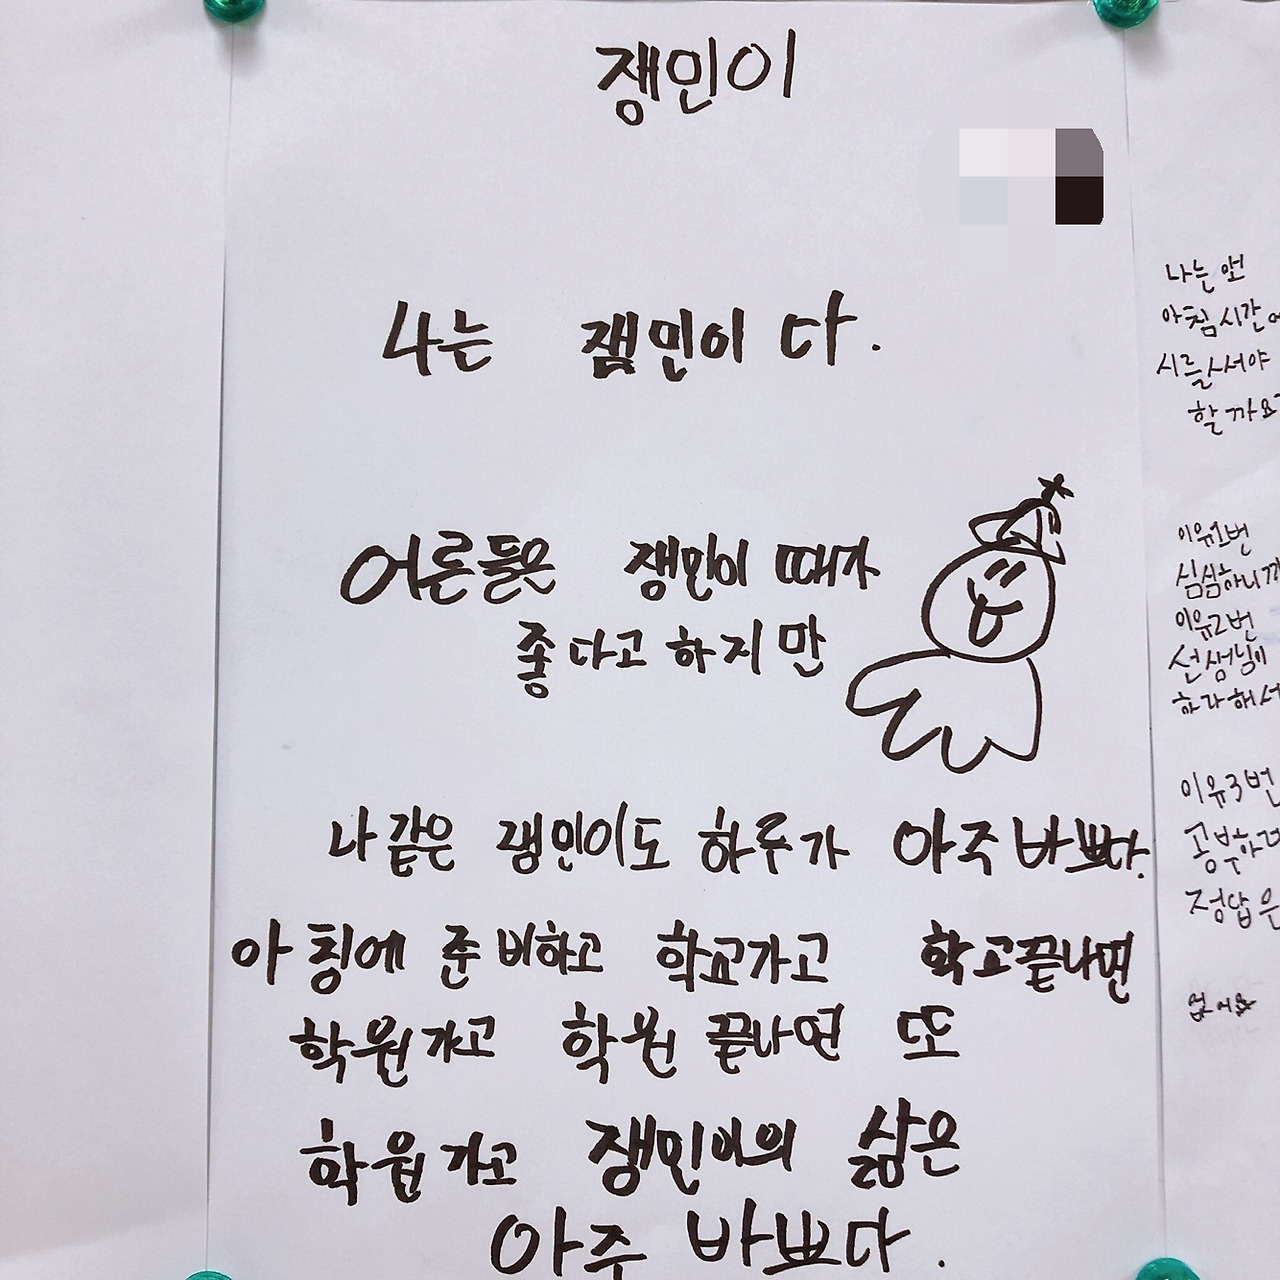 쟁민이
나는 잼민이다.
어른들은 쟁민이 때가
좋다고 하지만
나같은 쟁민이도 하루가 아주 바쁘다.
아침에 준비하고 학교가고 학교끝나면
학원가고 학원 끝나면 또
학원가고 쟁민이의 삶은
아주 바쁘다.
나는 왜
아침시간에
시를 써야
할까요?
이유1번
심심하니까
이유2번
선생님이
하라해서
이유3번
공부하
정답은
없어요